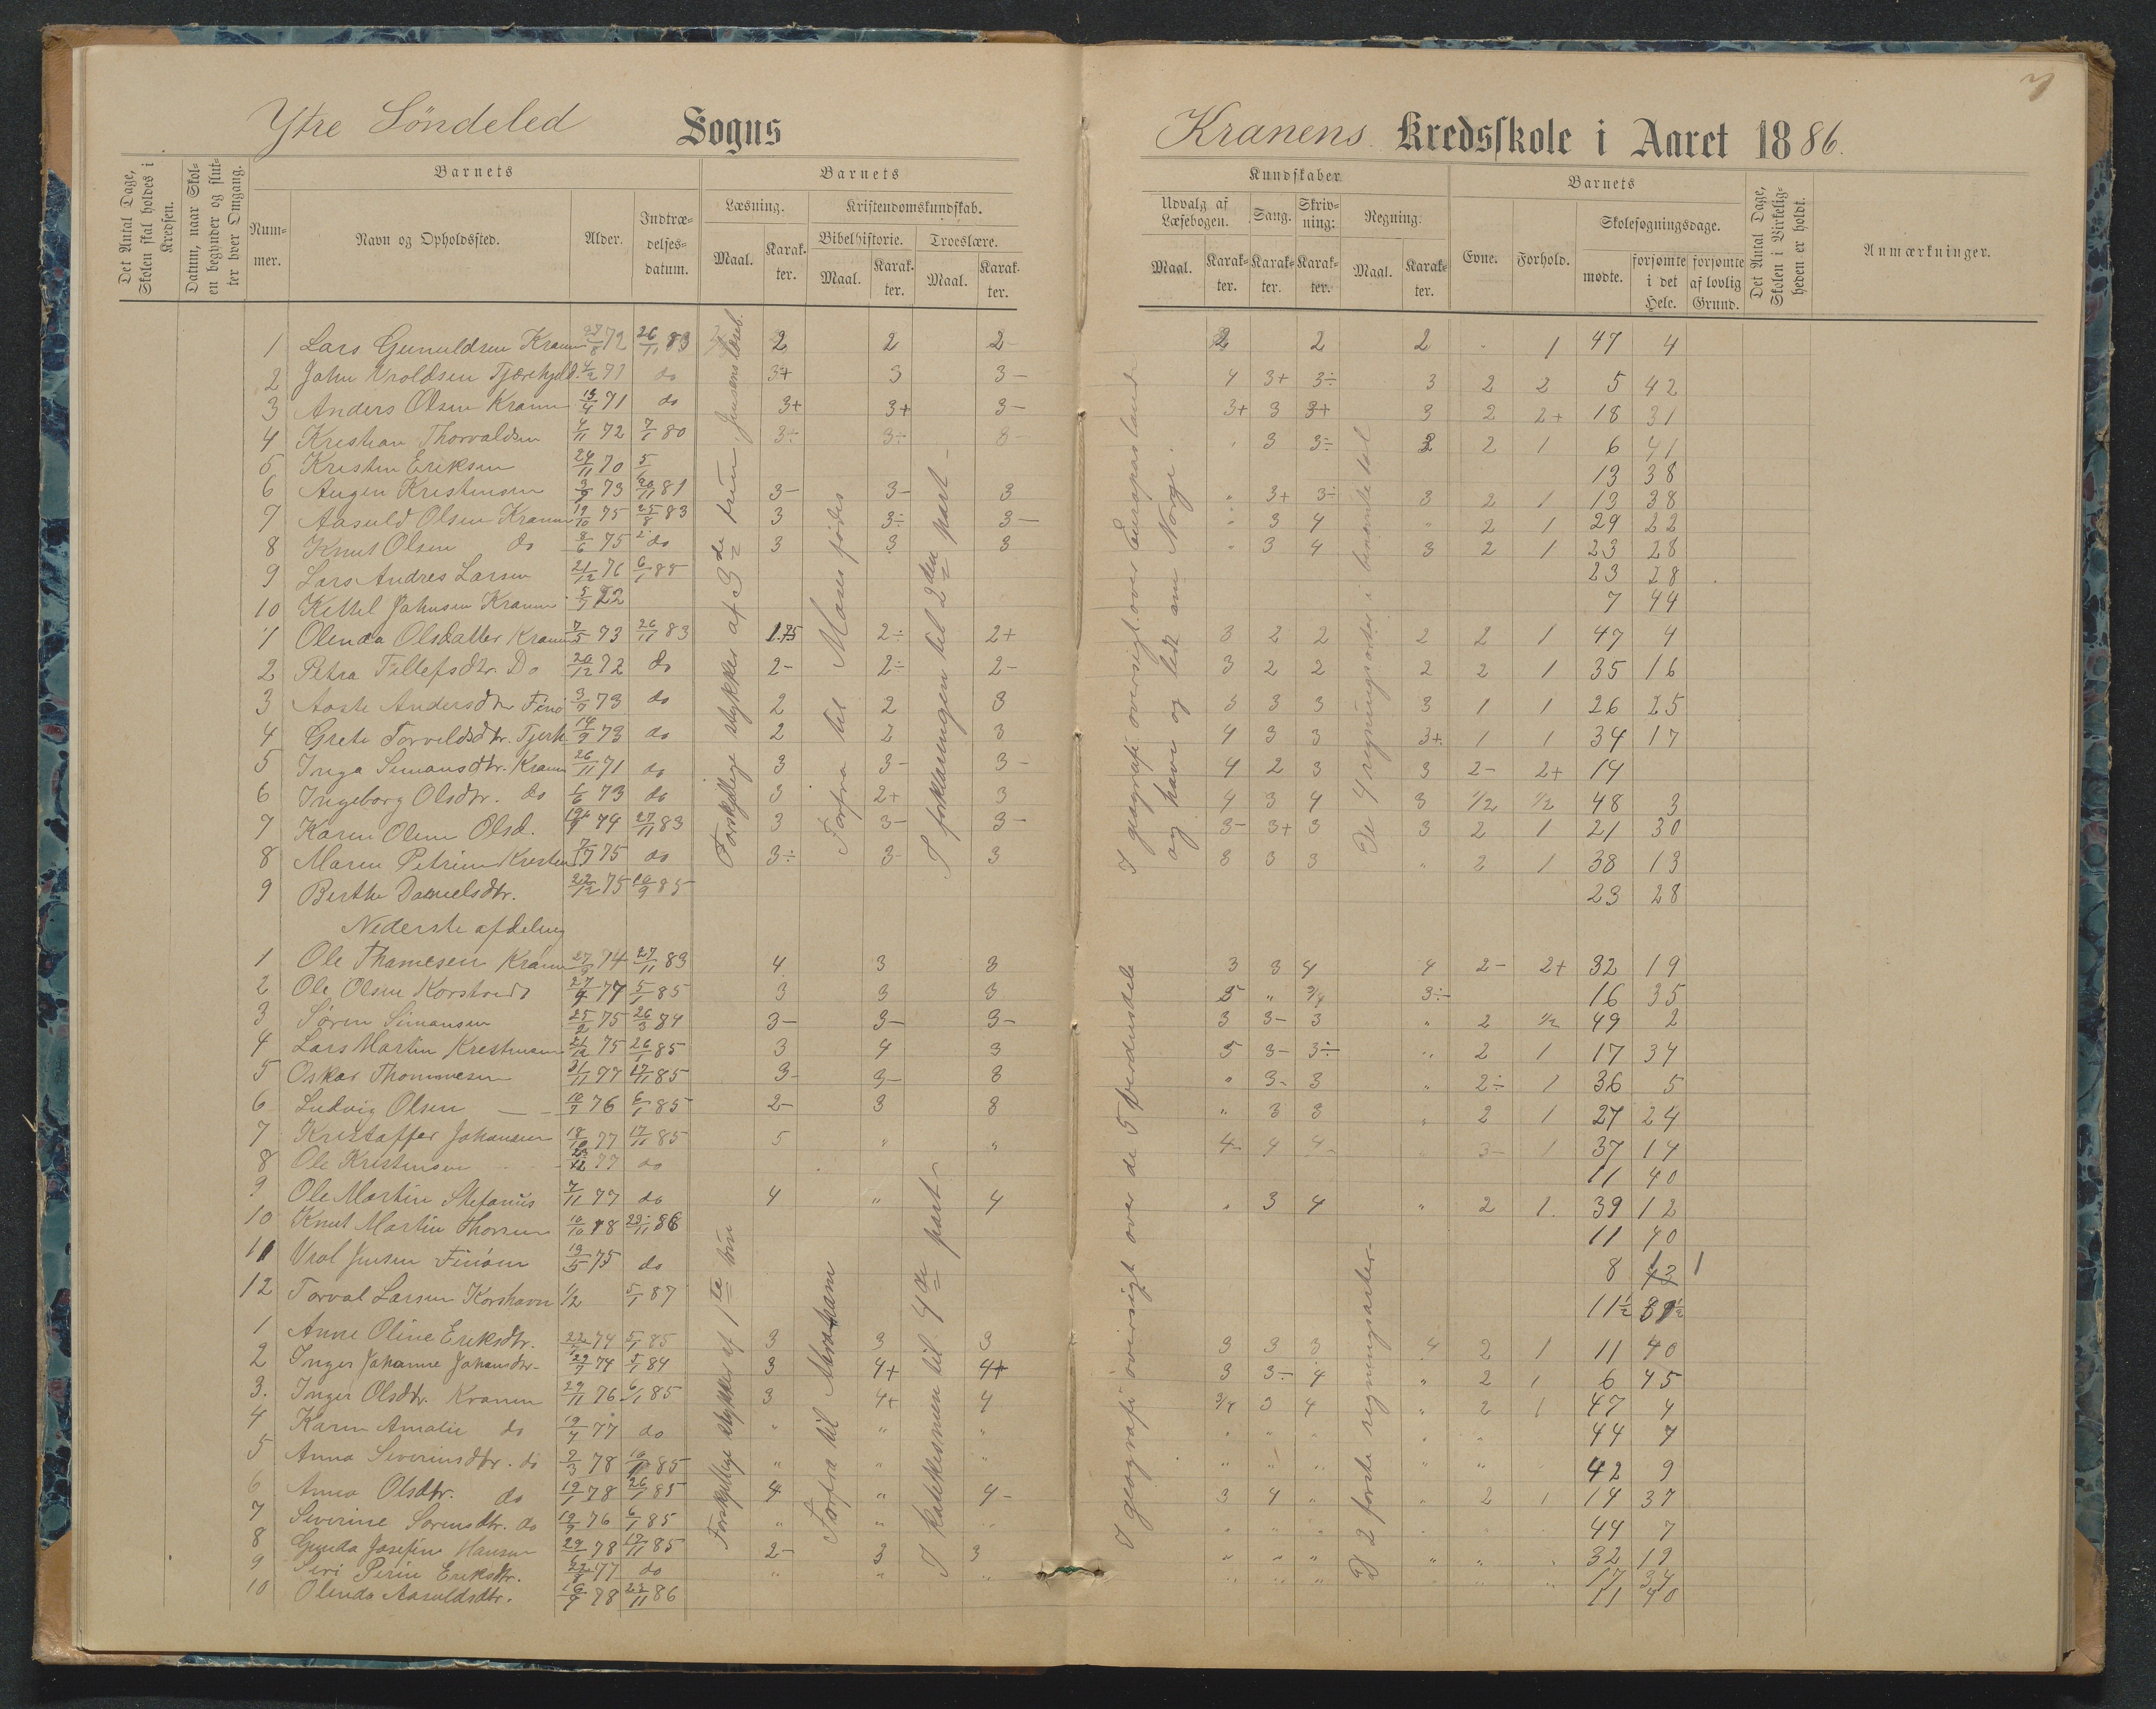 Ytre Söndeled Sogns
Kranens Kredsskole i Aaret 1886.
Det Antal Dage, Skolen skal holdes i Kredsen.
Datum, naar Skolen begynder og slutter hver Omgang.
Barnets
Nummer.
Navn og Opholdssted.
Alder.
Indtrædelsesdatum.
Barnets
Læsning.
Maal.
Karakter.
Kristendomskundskab.
Bibelhistorie.
Maal.
Karakter.
Troeslære.
Maal.
Karakter.
Kundskaber
Udvalg af Læsebogen.
Maal.
Karakter.
Sang.
Karakter.
Skrivning:
Karakter.
Regning.
Maal.
Karakter.
Barnets
Evne.
Forhold.
Skolesøgningsdage.
mødte.
forsømte i det Hele.
forsømte af lovlig Grund.
Det Antal Dage, Skolen i Virkeligheden er holdt.
Anmærkninger.
1 Lars Gunuldsen 72 26/11 83 2 2 2- 2 2 2 1 47 4
2 John Vroldsen 4/2 71 do 3+ 3 3- 4 3+ 3÷ 3 2 2 5 42
3 Anders Olsen Kranen 71 do 3+ 3+ 3- 3+ 3 3+ 3 2 2+ 18 31
4 Kristian Thorvaldsen 72 7/1 80 3÷ 3÷ 3- " 3 3÷ 3 2 1 6 41
5 Kristen Eriksen 24/11 70 13 38
6 Augen Kristensen 73 81 3- 3- 3 " 3+ 3÷ 3 2 1 13 38
7 Aasuld Olsen Kranen 19/10 75 25/8 83 3 3÷ 3- " 3 4 " 2 1 29 22
8 Knut Olsen do 8/6 75 do 3 3 3 " 3 4 3 2 1 23 28
9 Lars Andres Larsen 21/12 76 6/1 85 23 28
10 Kittel Johnsen Kranen 7 44
1 Olenda Olsdatter Kranen 7/5 73 26/11 83 1.75 2÷ 2+ 3 2 2 2 2 1 47 4
2 Petra Tellefsdtr. Do 26/12 72 do 2- 2÷ 2- 3 2 2 2 2 1 35 16
3 Aaste Andersdtr 73 do 2 2 3 3 3 3 3 1 1 26 25
4 Grete Torvildsdtr. Tjerh. 14/9 73 do 2 2 3 4 3 3 3+ 1 1 34 17
5 Inga Simonsdtr. Kranen 26/11 71 do 3 3- 3- 4 2 3 3 2- 2+ 14
6 Ingeborg Olsdtr. do 73 do 3 2+ 3 4 3 4 3 1/2 1/2 48 3
7 Karen Oline Olsd. 74 27/11 83 3 3- 3- 3- 3+ 3 3 2 1 21 30
8 Maren Petrine 75 do 3÷ 3- 3 3 3 3 " 2 1 38 13
9 Berthe Danielsdtr. 22/12 75 10/9 85 23 28
Nederste afdeling
1 Ole Thomesen Kranen 27/9 74 27/11 83 4 3 3 3 3 4 4 2- 2+ 32 19
2 Ole Olsen 27/4 77 5/1 85 3 3 3 5 " 3/4 3÷ 16 35
3 Søren Simonsen 25/2 75 26/3 84 3- 3- 3- 3 3- 3 " 2 1/2 49 2
4 Lars Martin 21/12 75 26/1 85 3 4 3 5 3- 3÷ " 2 1 17 34
5 Oskar Thommesen 77 17/11 85 3- 3- 3 " 3- 3 " 2÷ 1 36 5
6 Ludvig Olsen 10/7 76 6/1 85 2- 3 3 " 3 3 " 2 1 27 24
7 Kristaffer Johansen 18/10 77 17/11 85 5 " " 4- 4 4- 3- 1 37 14
8 Ole Kristensen 77 do 11 40
9 Ole Martin Stefanus 7/11 77 do 4 " 4 " 3 4 " 2 1. 39 12
10 Knut Martin Thorsen 10/10 78 86 11 40
11 Vrol Jensen Finöen 19/5 75 do 8 43 1
12 Torval Larsen Korshavn 1/2 5/1 87 11½ 39½
1 Anne Oline Eriksdtr. 74 5/1 85 3 3 3 3 3 3 4 2 1 11 40
2 Inger Johanne Johansdtr. 29/7 74 5/1 84 3 4+ 4+ 3 3- 4 " 2 1 6 45
3. Inger Olsdtr. Kranen 29/11 76 6/1 85 3 4+ 4 3/4 3 4 " 2 1 47 4
4 Karen Amalie do 77 do " " " 44 7
5 Anna Severinsdtr. do 2/3 78 85 " " " 42 9
6 Anna Olsdtr. do 19/1 78 26/1 85 4 " 4- 3 4 " " 2 1 14 37
7 Severine Sorensdtr. do 76 6/1 85 " " 44 7
8 Gunda Josefine Hansen 78 85 2- 3 3 32 19
9 Siri Eriksdtr. 77 do 17 34
10 Olenda Aasuldsdtr. 78 86 11 40
Forskjellige stykker af 3de trin, Jensens læseb.
Forfra til Moses fødes
I forklaringen til 2den part
I geografi oversigt over Europas lande
og have og lidt om Norge.
De 4 regningsarter i benævnte tal
Forskjellige stykker af 1te trin
Forfra til Abraham
I katekesmen til 4de part
I geografi oversigt over de 5 verdensdele
De 2 første regningsarter